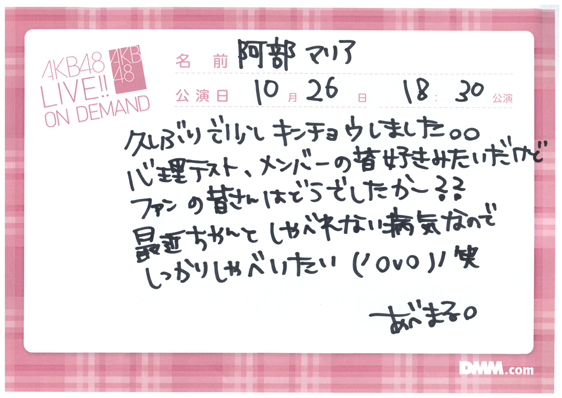 AKB48
LIVE!!
ON DEMAND
AKB
48
名前 阿部 マリア
公演日 10月26日 18:30公演
久しぶりで少しキンチョウしました。。
心理テスト、メンバーの皆好きみたいだけど
ファンの皆さんはどうでしたかー??
最近ちゃんとしゃべれない病気なので
しっかりしゃべりたい(ﾉOvO)ﾉ笑
あべまる。
DMM.com